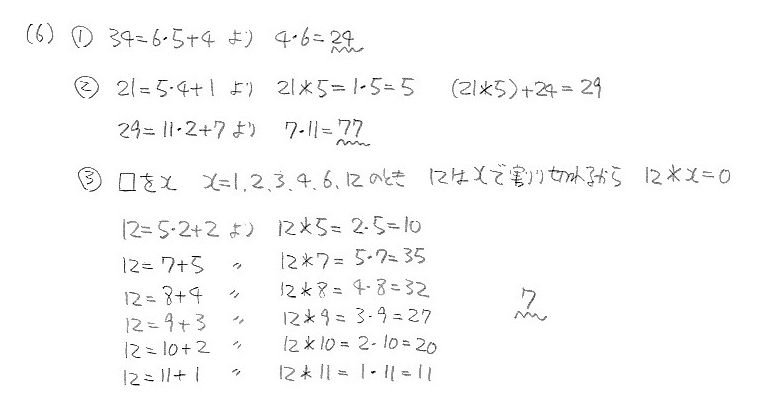 (6) ① 34=6·5+4 より 4·6=24
② 21=5·4+1 より 21*5=1·5=5 (21*5)+24=29
29=11·2+7より 7·11=77
③ □をx x=1.2.3.4.6.12のとき 12はxで割り切れるから 12*x=0
12=5·2+2 より 12*5=2·5=10
12=7+5 〃 12*7=5·7=35
12=8+4 〃 12*8=4·8=32
12=9+3 〃 12*9=3·9=27
7
12=10+2 〃 12*10=2·10=20
12=11+1 〃 12*11=1·11=11